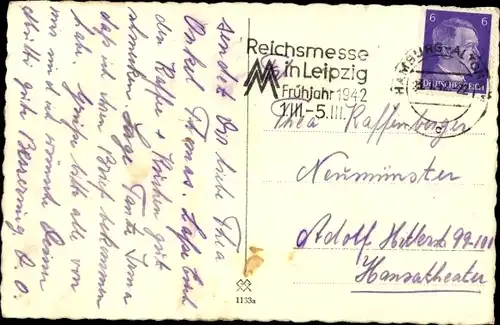 Reichsmesse
in Leipzig
Frühjahr 1942
1.III.-5.III.
HAMBURG-ALTONA
6 6
DEUTSCHES REICH
Thea Raffenberger
Neumünster
Adolf Hitlerst 99-101
Hansatheater
1133a
sendet Dir liebe Thea
Onkel Thomas. Laßt Euch
den Kaffee + Kuchen gut
schmecken. Sage Tante Irma
daß ich ihren Brief bekommen
habe. Grüße bitte alle von
mir und ich wünsche Deiner
Mutti gute Besserung D. O.